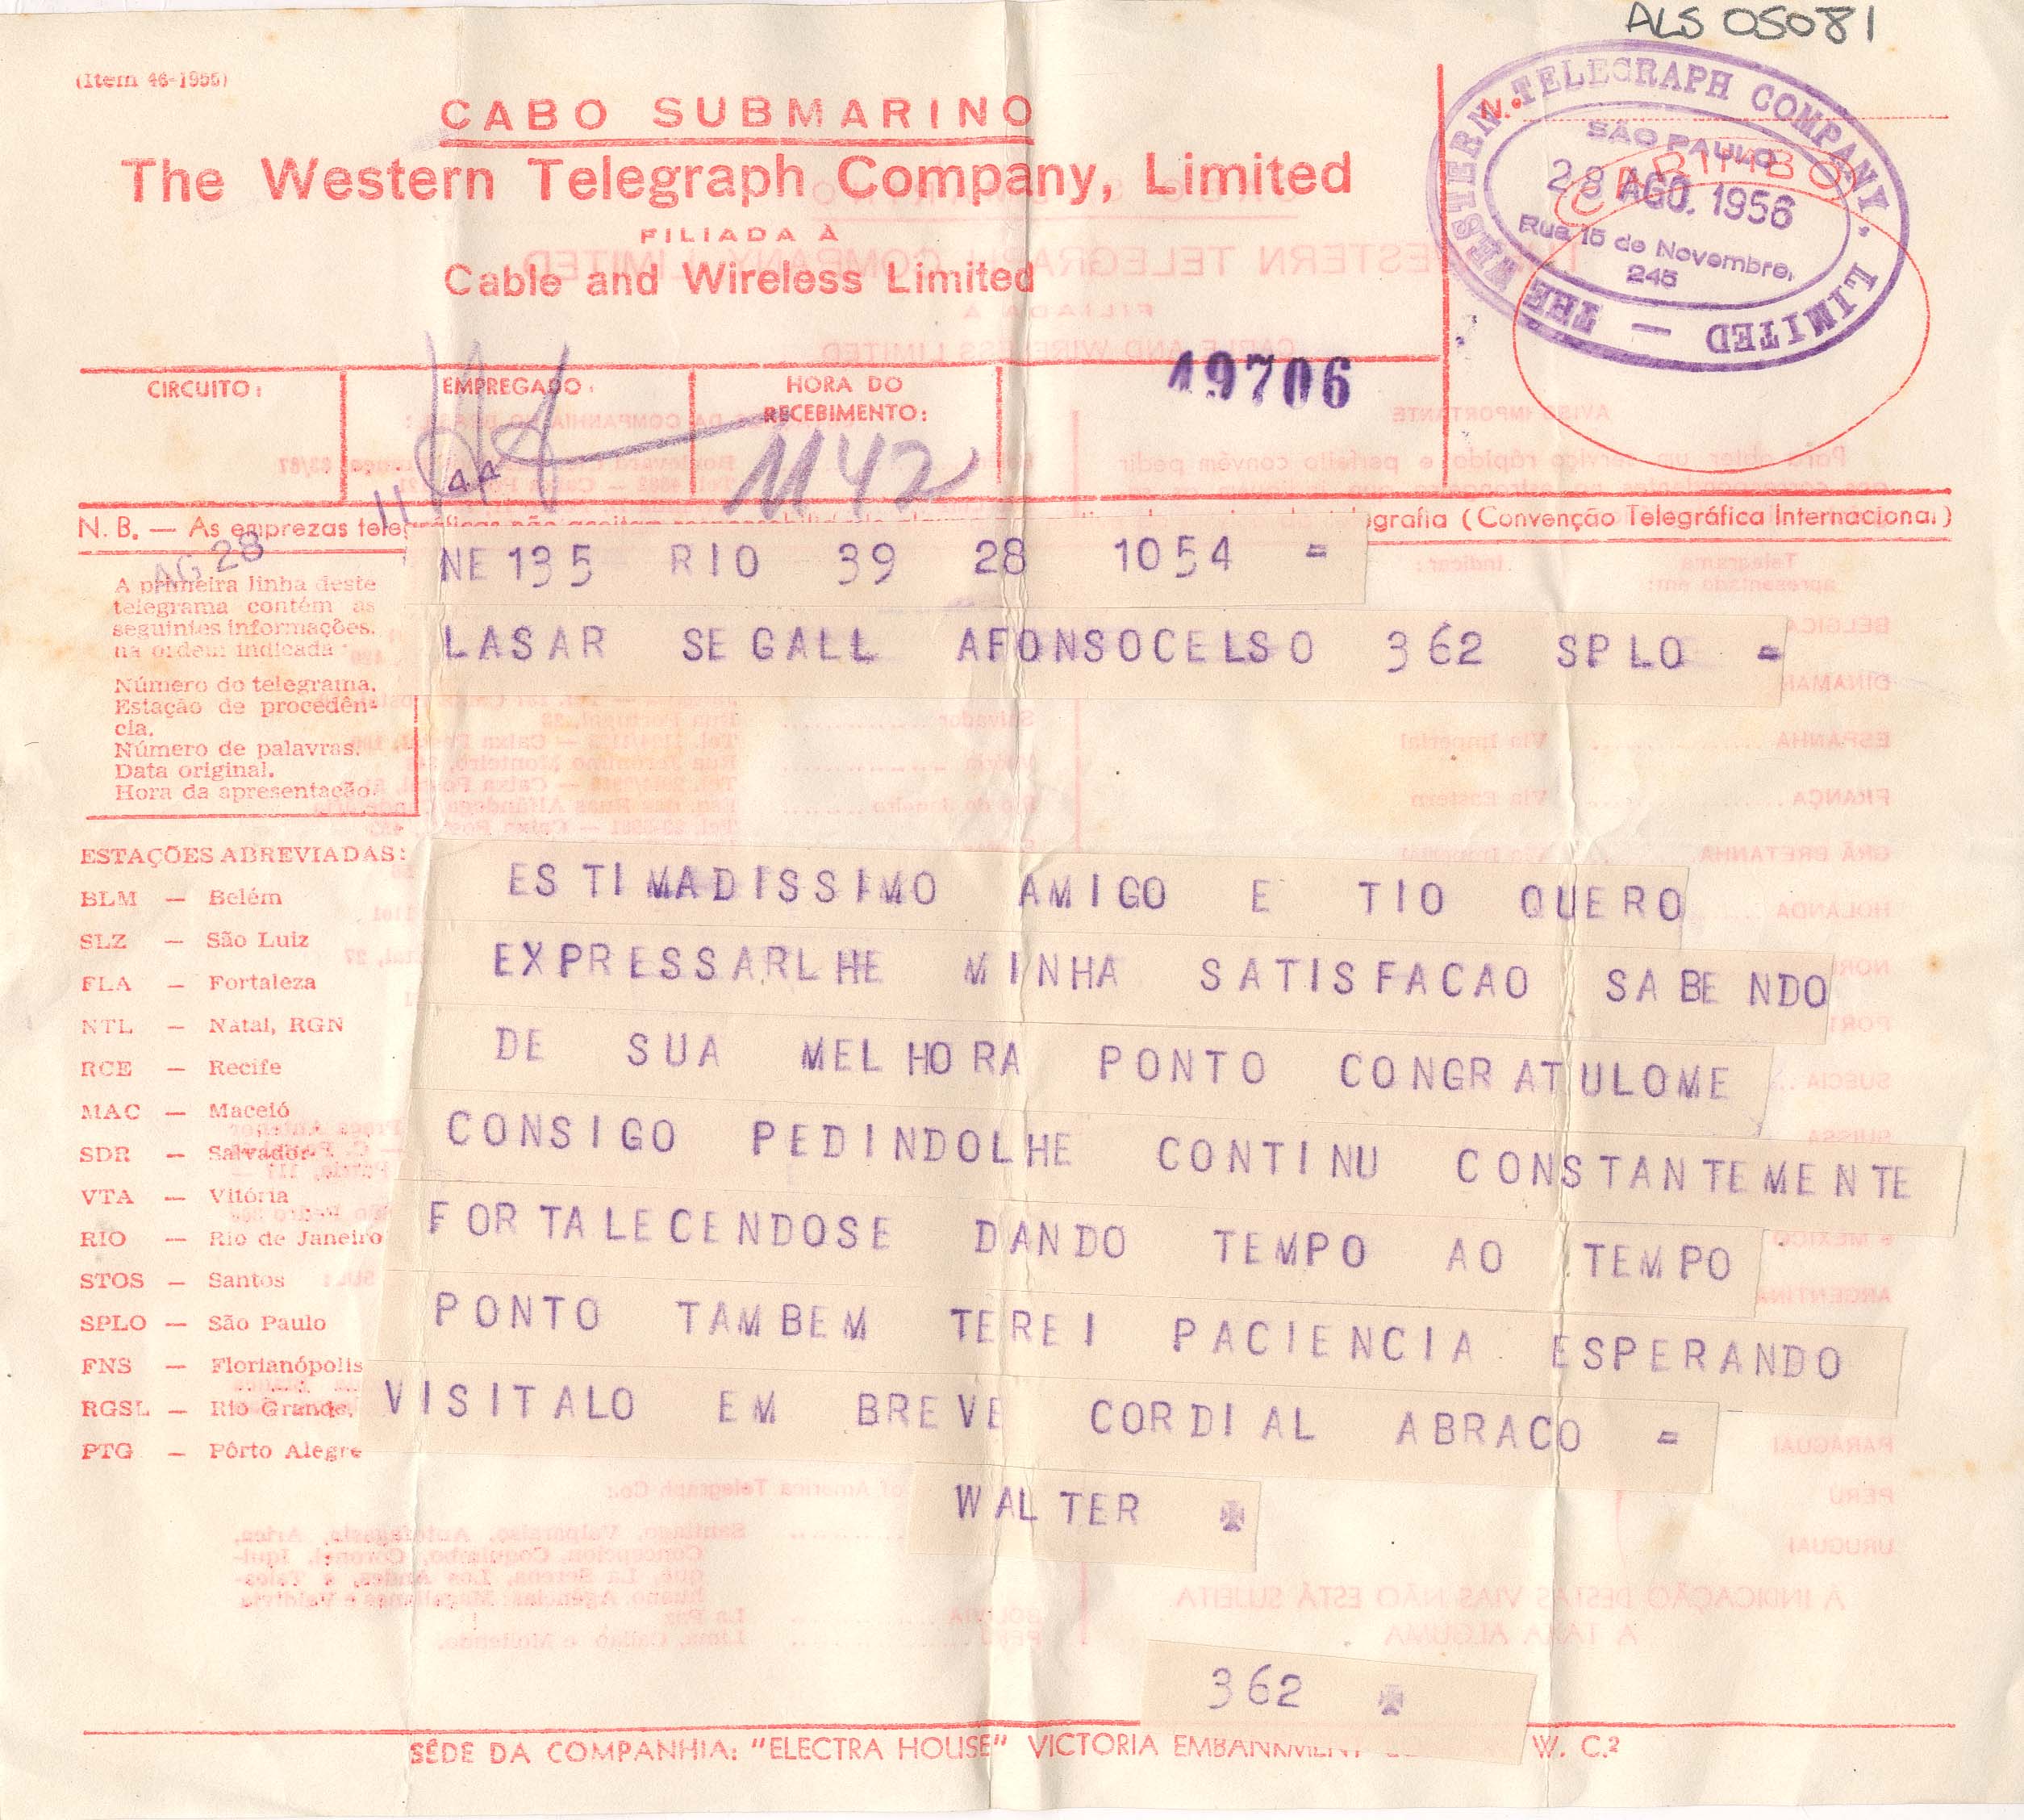 ALS 05081
(Item 46-1956)
CABO SUBMARINO
The Western Telegraph Company, Limited
FILIADA À
Cable and Wireless Limited
N.
CARIMBO
THE WESTERN TELEGRAPH COMPANY, LIMITED —
SÃO PAULO
28 AGO. 1956
Rua 15 de Novembro,
245
CIRCUITO:
EMPREGADO:
HORA DO
RECEBIMENTO:
1142
49706
11 44
AG 28
N. B. — As emprezas
telegrafia (Convenção Telegráfica Internacional)
NE135 RIO 39 28 1054 =
LASAR SEGALL AFONSOCELSO 362 SPLO =
A primeira linha deste
telegrama contém as
seguintes informações,
na ordem indicada:
Número do telegrama.
Estação de procedên-
cia.
Número de palavras.
Data original.
Hora da apresentação.
ESTAÇÕES ABREVIADAS:
BLM — Belém
SLZ — São Luiz
FLA — Fortaleza
NTL — Natal, RGN
RCE — Recife
MAC — Maceió
SDR — Salvador
VTA — Vitória
RIO — Rio de Janeiro
STOS — Santos
SPLO — São Paulo
FNS — Florianópolis
RGSL — Rio Grande,
PTG — Pôrto Alegre
ESTIMADISSIMO AMIGO E TIO QUERO
EXPRESSARLHE MINHA SATISFACAO SABENDO
DE SUA MELHORA PONTO CONGRATULOME
CONSIGO PEDINDOLHE CONTINU CONSTANTEMENTE
FORTALECENDOSE DANDO TEMPO AO TEMPO
PONTO TAMBEM TEREI PACIENCIA ESPERANDO
VISITALO EM BREVE CORDIAL ABRACO =
WALTER
362
SÉDE DA COMPANHIA: "ELECTRA HOUSE" VICTORIA EMBANKMENT W. C.2